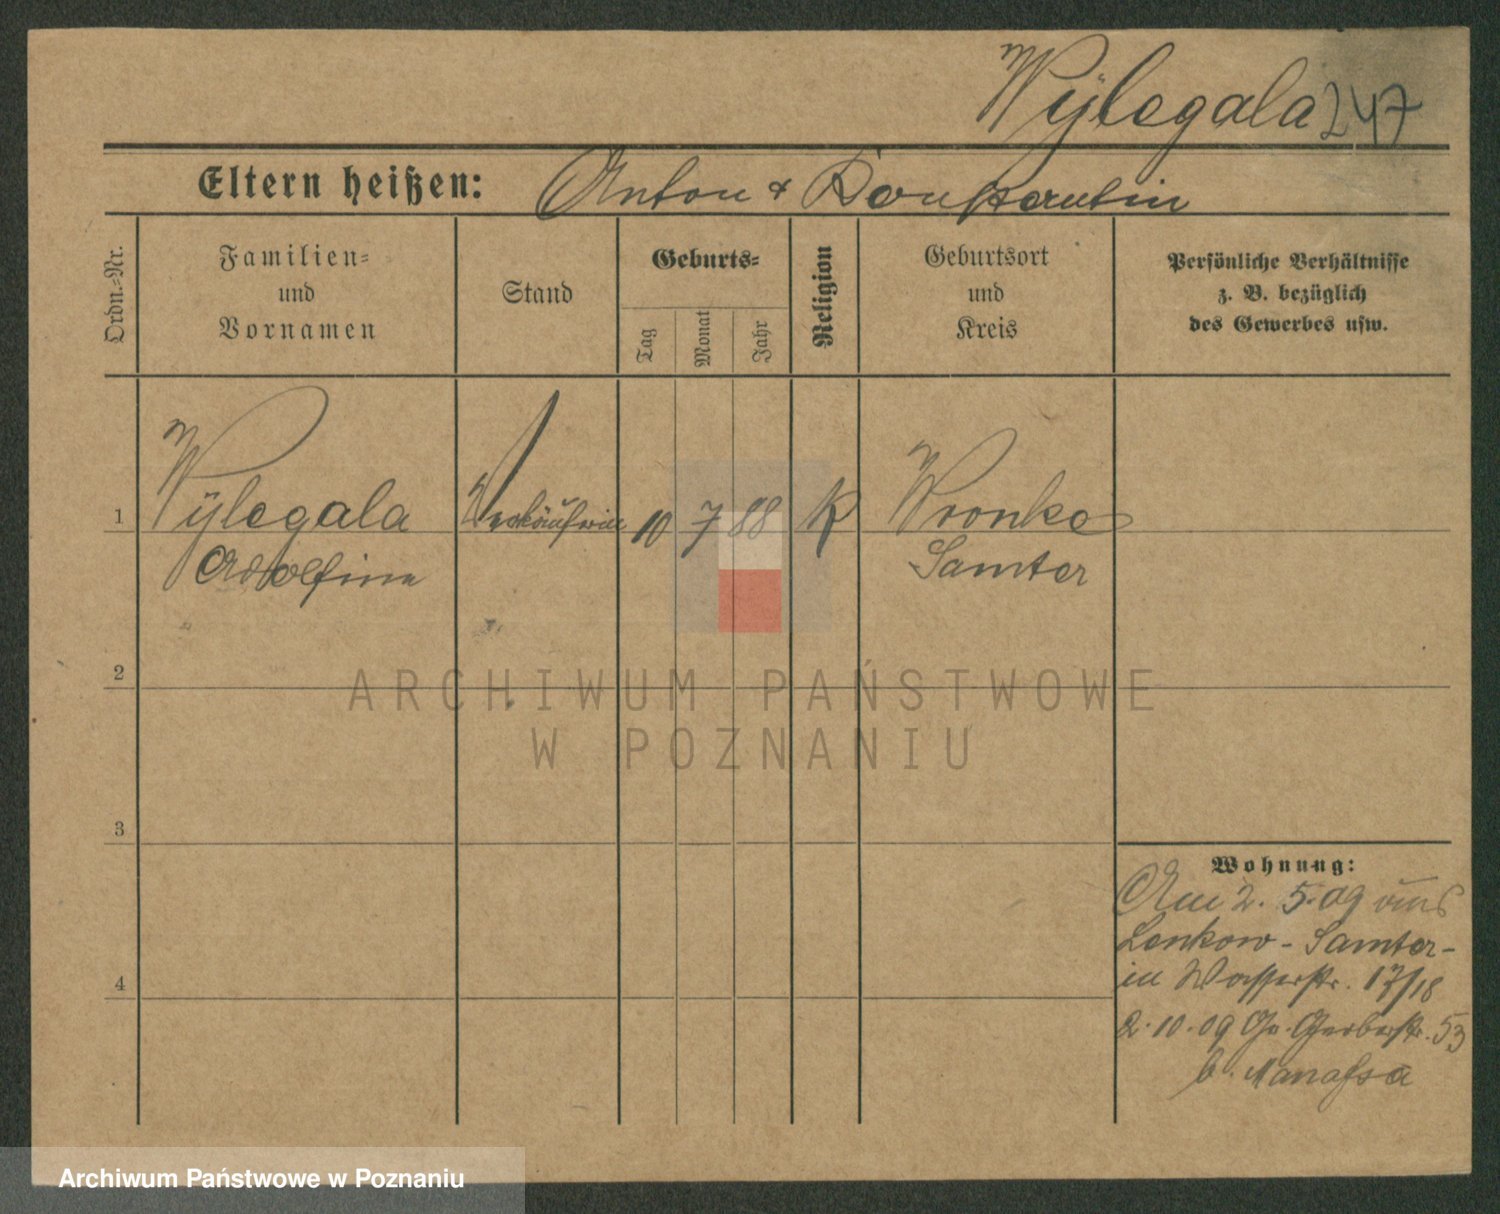 Wÿlegala 247
Eltern heißen: Anton &
Ordn.=Nr.
Familien=
und
Vornamen
Stand
Geburts=
Tag
Monat
Jahr
Religion
Geburtsort
und
Kreis
Persönliche Verhältnisse
z. B. bezüglich
des Gewerbes usw.
1 Wÿlegala Verkäuferin 10 7 88 K Wronke
Adolfine Samter
2
ARCHIWUM PAŃSTWOWE
W POZNANIU
3
Wohnung:
Am 2. 5. 09 aus
Lenkow - Samter -
in Wasserstr. 17/18
4
2. 10. 09 Gr. Gerberstr. 53
b.
Archiwum Państwowe w Poznaniu